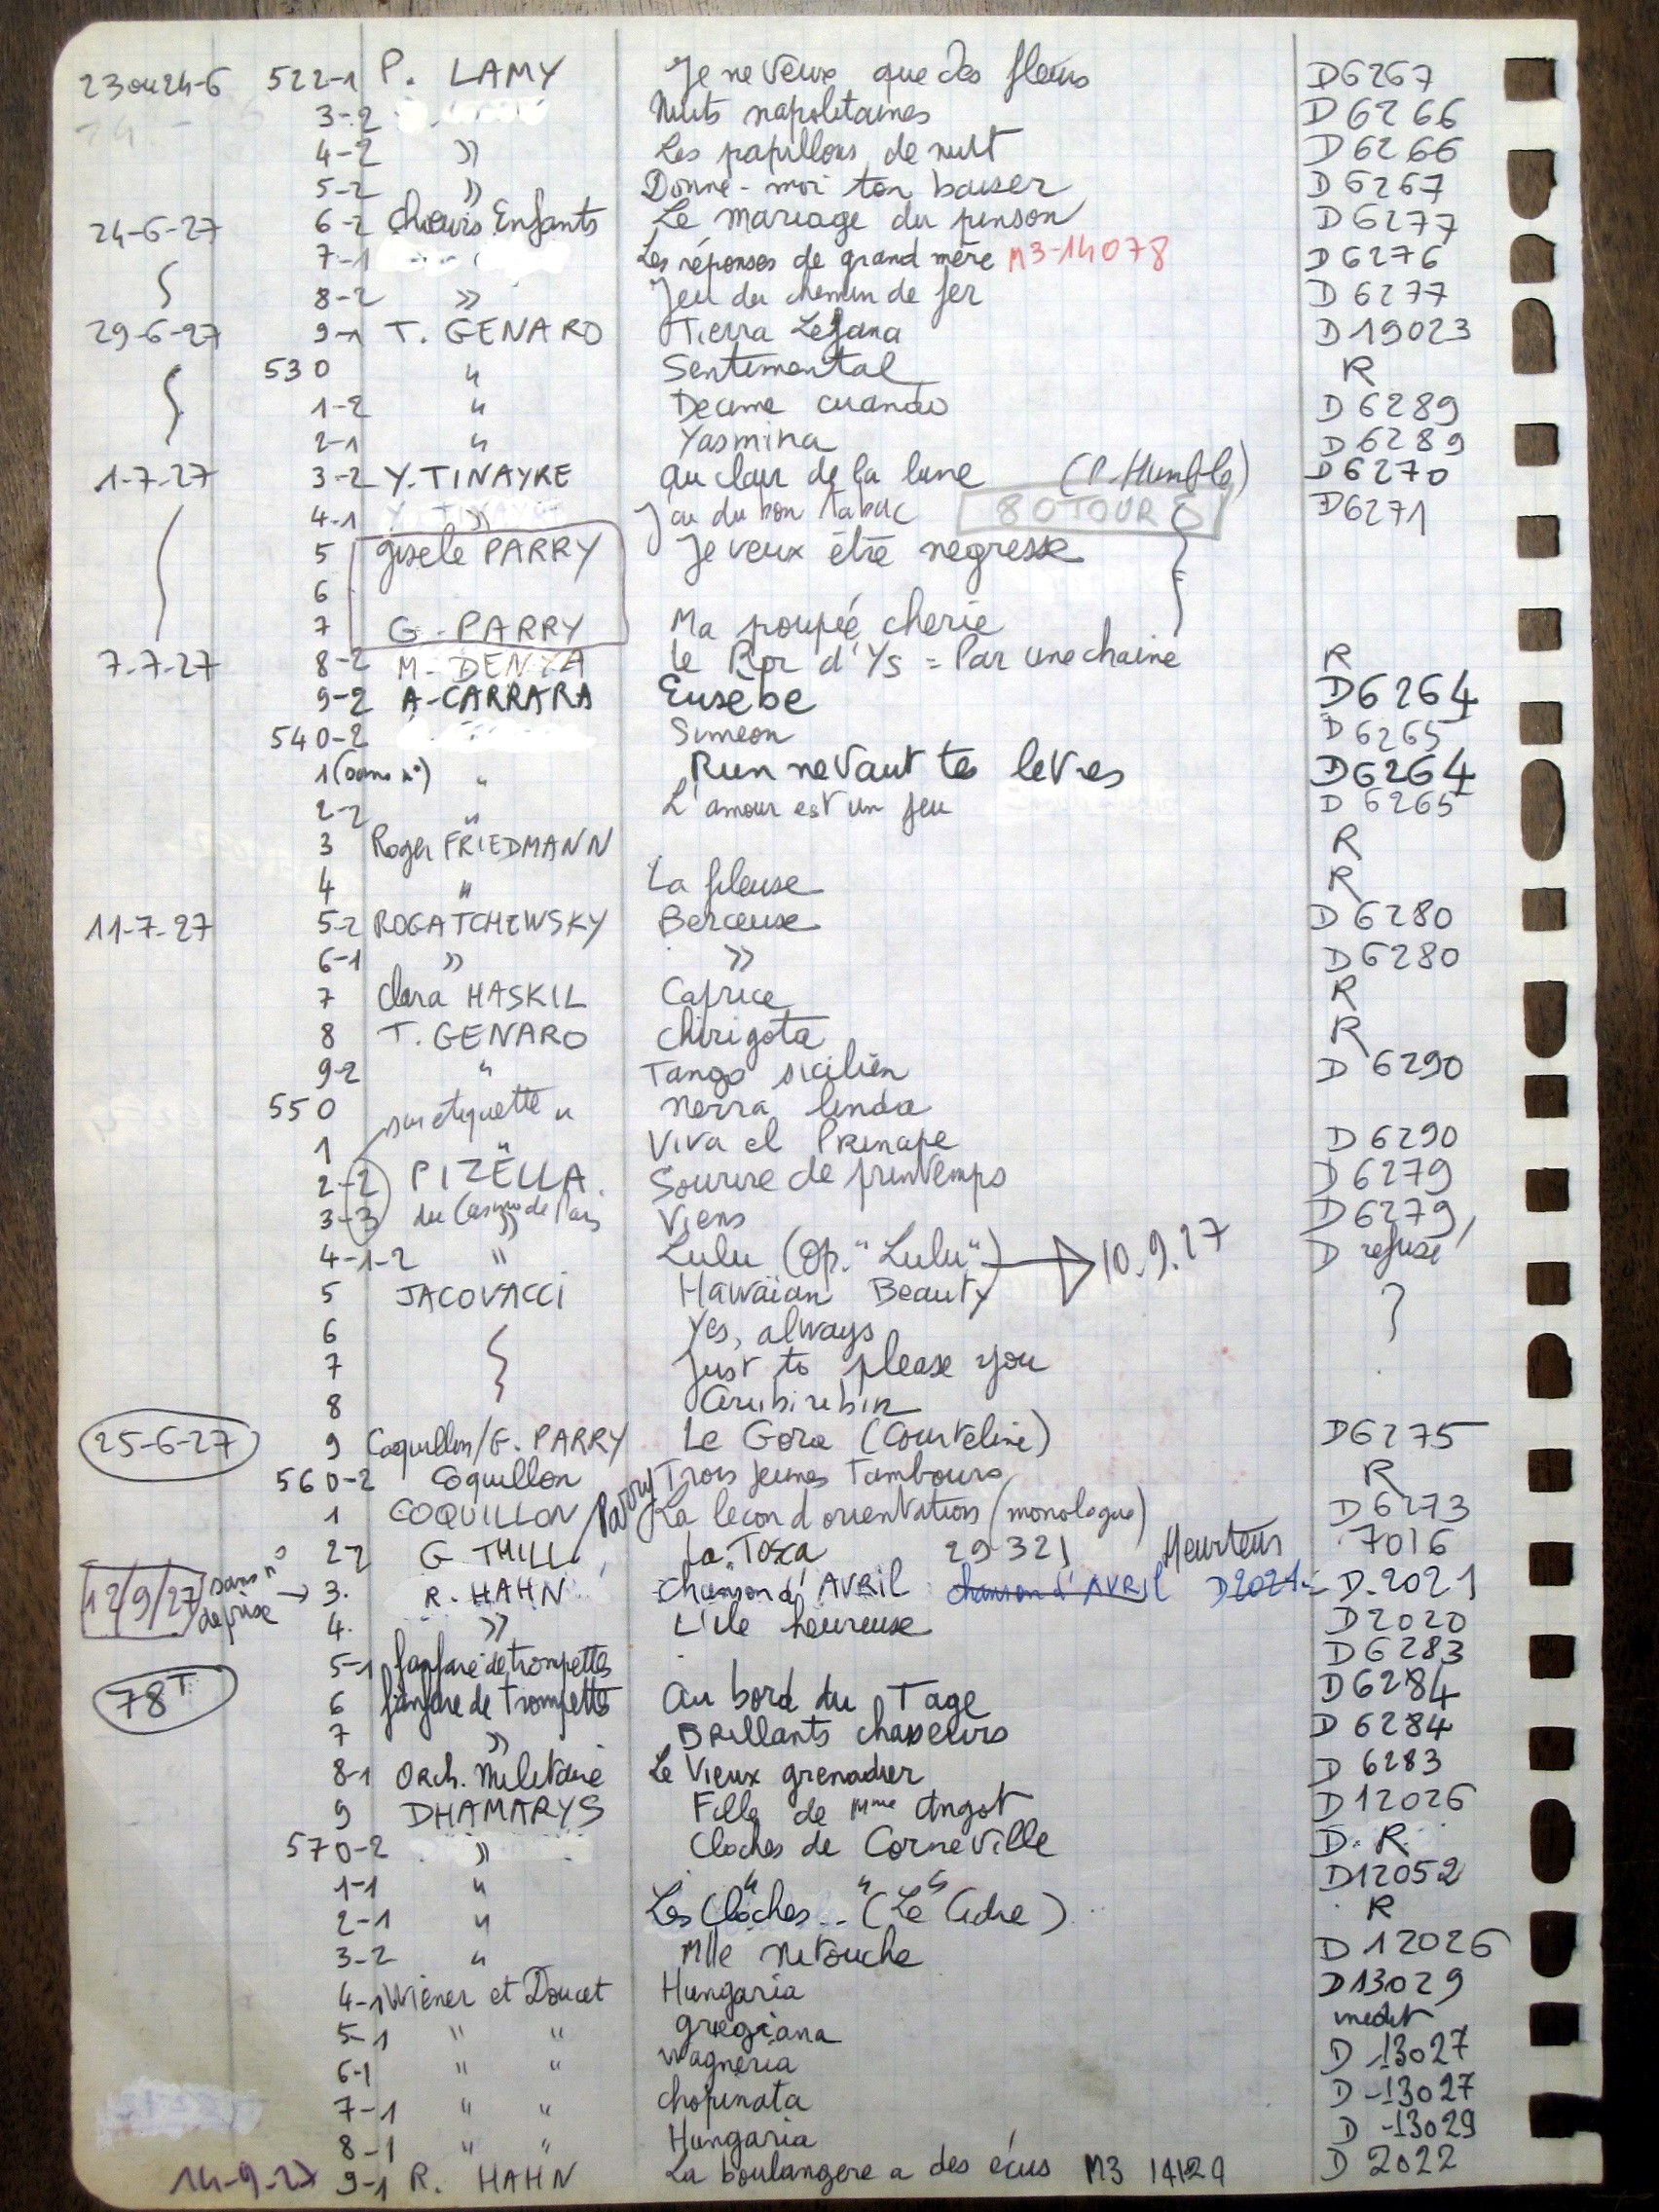 23 ou 24-6 522-1 P. LAMY Je ne veux que des fleurs D6267
3-2 Nuits napolitaines D6266
4-2 » Les papillons de nuit D6266
5-2 » Donne-moi ton baiser D6267
24-6-27 6-2 Choeurs Enfants Le mariage du pinson D6277
7-1 Les réponses de grand mère M3-14078 D6276
8-2 » Jeu du chemin de fer D6277
29-6-27 9-1 T. GENARO Tierra Lejana D19023
530 " Sentimental R
1-2 " Decime cuando D6289
2-1 " Yasmina D6289
1-7-27 3-2 Y. TINAYRE Au clair de la lune (P. Humble) D6270
4-1 » J'ai du bon tabac 80 TOURS D6271
5 Gisele PARRY Je veux être negresse
6
7 G. PARRY Ma poupée cherie
7-7-27 8-2 M. DENYA Le Roi d'Ys = Par une chaine R
9-2 A-CARRARA Eusebe D6264
540-2 Simeon D6265
1 (sans n°) " Rien ne vaut tes levres D6264
2-2 " L'amour est un jeu D6265
3 Roger FRIEDMANN R
4 " La fileuse R
11-7-27 5-2 ROGATCHEWSKY Berceuse D6280
6-1 » » D6280
7 Clara HASKIL Caprice R
8 T. GENARO Chirigota R
9-2 " Tango sicilien D6290
550 sur etiquette " Nerra linda
1 " Viva el Principe D6290
2-2 PIZELLA Sourire de printemps D6279
3-3 du Casino de Paris » Viens D6279
4-1-2 " Lulu (Op. "Lulu") 10.9.27 D refusé
5 JACOVACCI Hawaïan Beauty ?
6 Yes, always
7 Just to please you
8 Ciribiribin
25-6-27 9 Coquillon/G. PARRY Le Gora (Courteline) D6275
560-2 Coquillon Trois jeunes Tambours R
1 COQUILLON / Parry La lecon d'orientation (monologue) D6273
2-2 G THILL La Tosca 29321 7016
12/9/27 sans n° de prise → 3. R. HAHN Chanson d'AVRIL chanson d'AVRIL Heurteur D2021 D.2021
4. » L'ile heureuse D2020
5-1 fanfare de trompettes D6283
78T 6 fanfare de trompettes Au bord du Tage D6284
7 » Brillants chasseurs D6284
8-1 Orch. Militaire Le Vieux grenadier D6283
9 DHAMARYS Fille de Mme Angot D12026
570-2 » Cloches de Corneville D.R
1-1 " " " " D12052
2-1 " Les Cloches.. (Le Cidre) R
3-2 " Mlle Nitouche D12026
4-1 Wiener et Doucet Hungaria D13029
5-1 " " griegiana inedit
6-1 " " Wagneria D-13027
7-1 " " Chopinata D-13027
8-1 " " Hungaria D-13029
14-9-27 9-1 R. HAHN La boulangere a des écus M3 14129 D2022